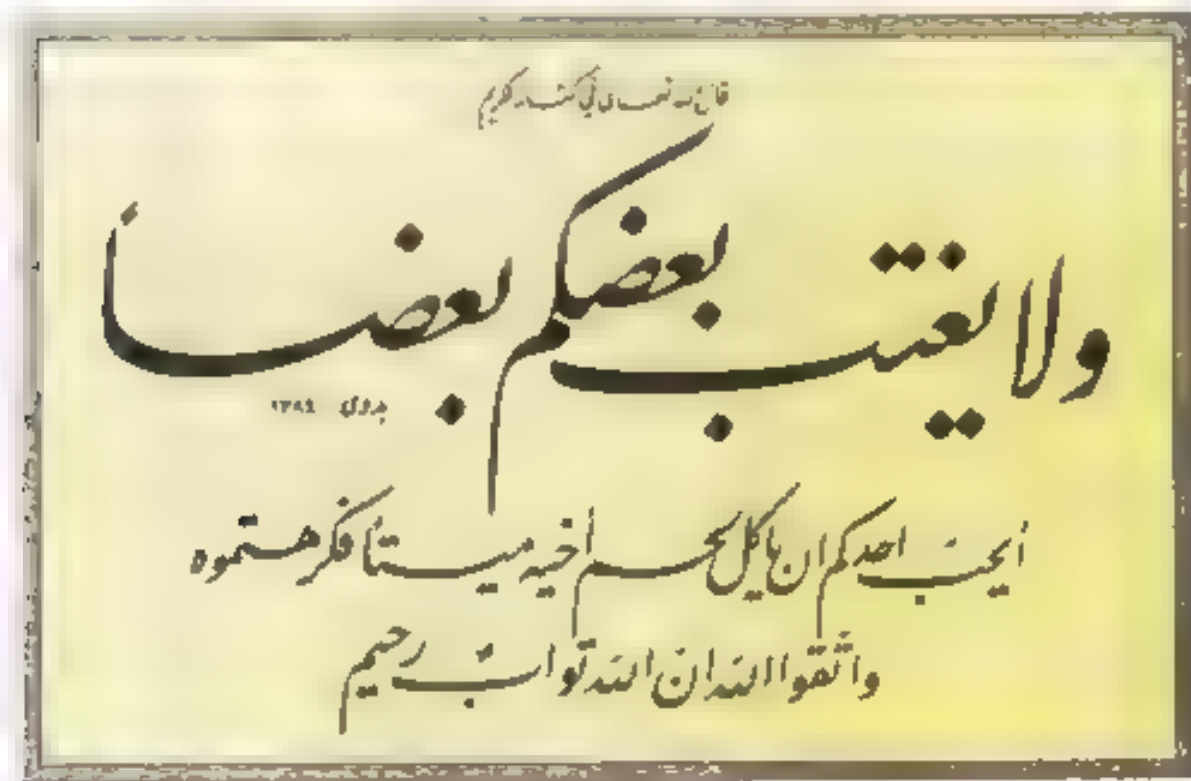 قال الله تعالى في كتابه الكريم
ولا يغتب بعضكم بعضاً
بدوي ١٣٨٤
أيحب احدكم ان ياكل لحم أخيه ميتاً فكرهتموه
واتقوا الله ان الله تواب رحيم